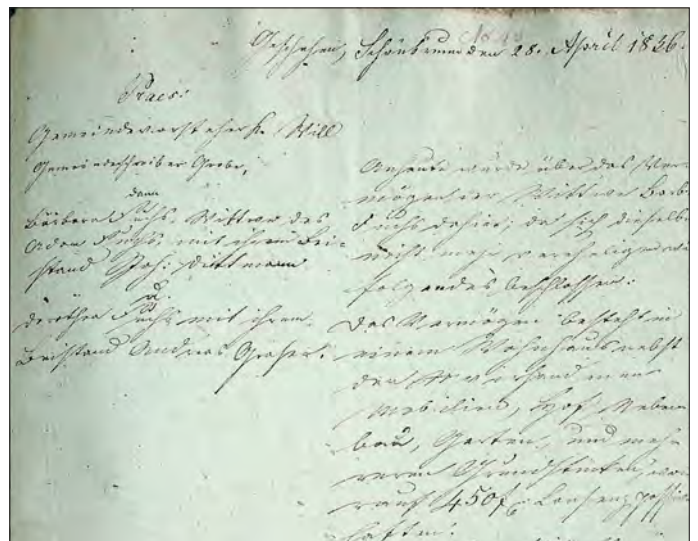 Geschehen, Schönbrunn den 28. April 1836.
Praes:
Gemeindevorsteher Will
Gemeindeschreiber Grebe,
dann
Bärbara Fuchs, Wittwe des
Adam Fuchs, mit ihrem Bei-
stand Joh: Dittmann
u.
Dorothea Fuchs mit ihrem
Beistand Andreas
Anheute wurde über das Ver-
mögen der Wittwe Barb:
Fuchs dahier, da sich dieselbe
nicht mehr verehelichen
folgendes beschlossen:
Das Vermögen besteht in
einem Wohnhaus nebst
den vorhandenen
Mobilien, Hof, Neben-
bau, Garten, und meh-
reren Grundstücken, wo-
rauf 450 f
haften.